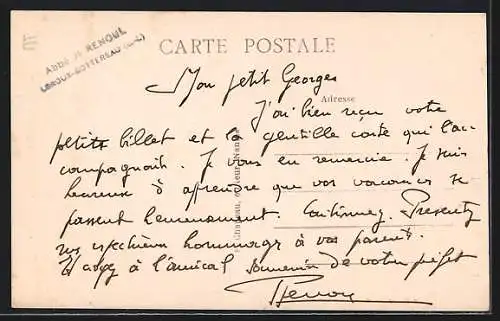 Abbé P. RENOUL
LOROUX-BOTTEREAU (L.-I.)
CARTE POSTALE
Mon petit Georges
Adresse
J'ai bien reçu votre
petits billet et la gentille carte qui l'ac-
compagnait. Je vous en remercie. Je suis
heureux d'apprendre que vos vacances se
passent heureusement. Continuez. Présentez
mes respectueux hommages à vos parents.
à l'amical souvenir de votre préfet